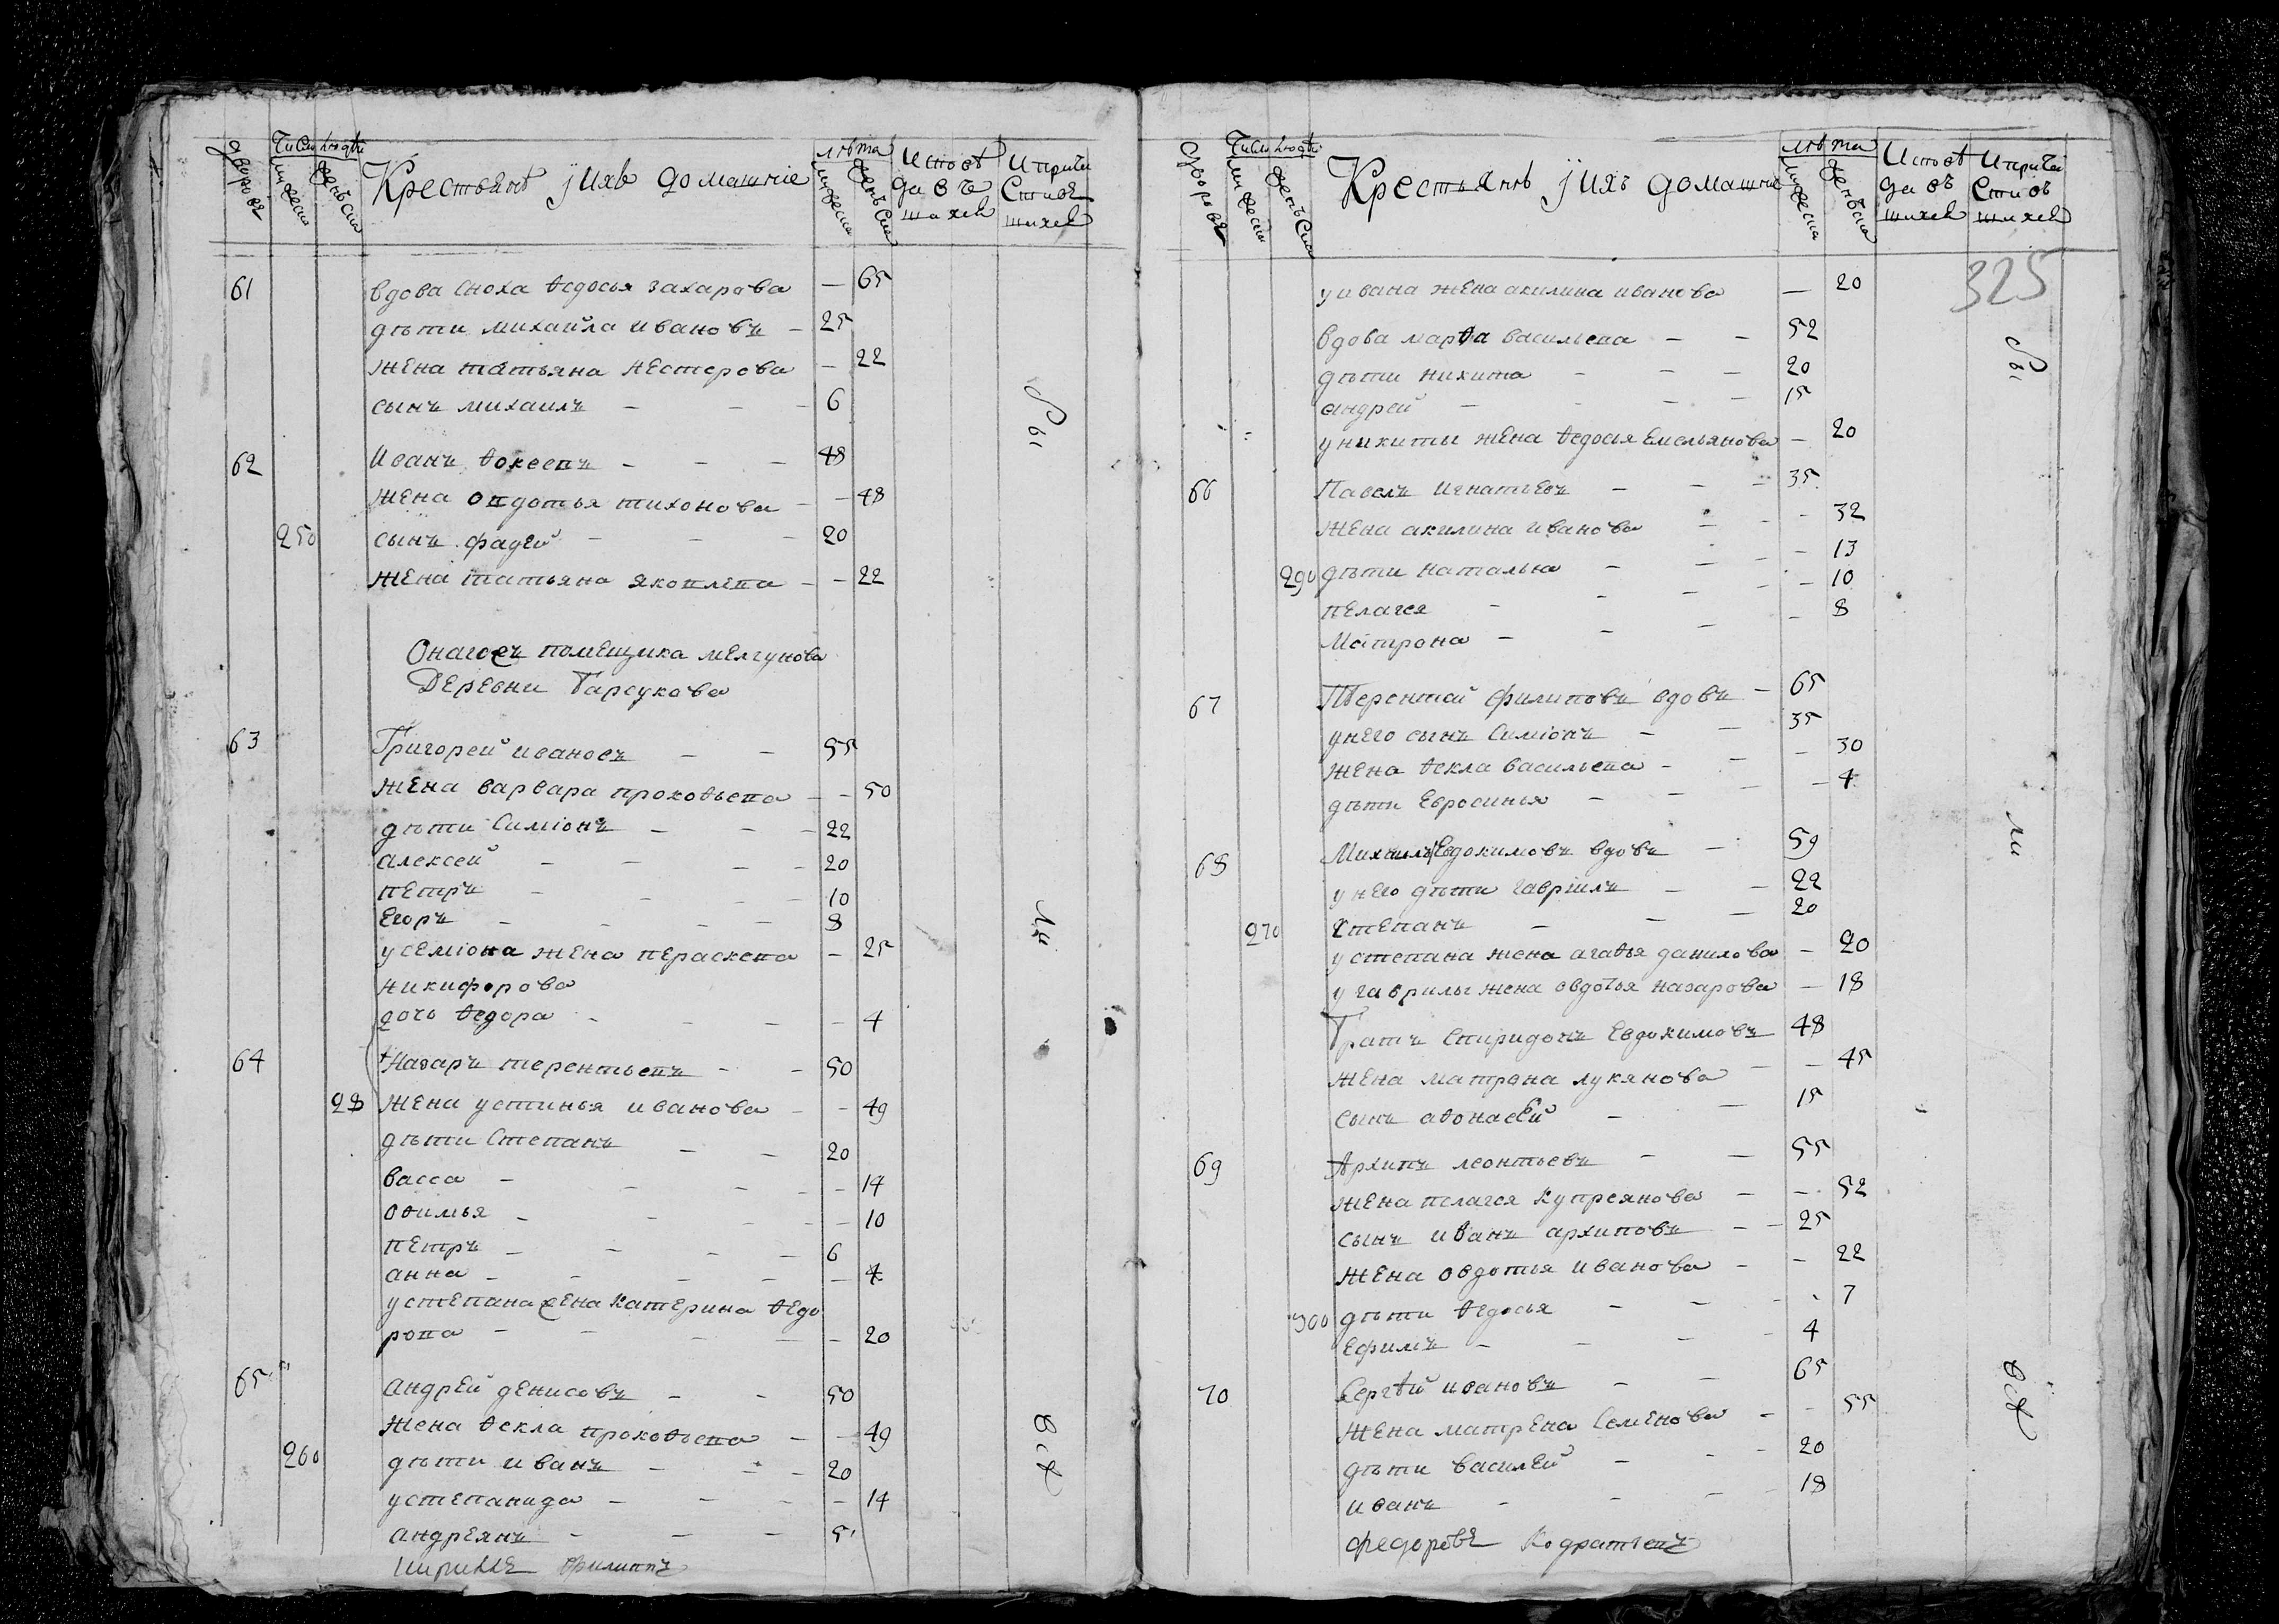 дворовъ
Число людей
мужеска
женъска
Крестьянъ ӱ ихъ домашніе
лѣта
мужеска
женъска
Исповѣ
давъ
шихся
И прича
стивъ
шихся
61 вдова сноха ѳедосья захарова — 65
дѣти михайла ивановъ — 25
жена татьяна нестерова — 22
сынъ михаилъ — — — 6
62 Иванъ ѳокеевъ — — — 48
жена овдотья тихонова — — 48
250 сынъ фадей — — — 20
жена татьяна яковлева — — 22
Онагожъ помещика мелгунова
Деревни Барсукова
63 Григорей ивановъ — — 55
жена варвара прокоѳьева — — 50
дѣти Симіонъ — — — 22
алексей — — — — 20
петръ — — — — 10
Егоръ — — — — 8
у семіона жена пераскева — 25
никифорова
дочь ѳедора — — — — 4
64 Назаръ терентьевъ — — 50
28 жена устинья иванова — — 49
дѣти Степанъ — — 20
васса — — — — — 14
оѳимья — — — — — 10
петръ — — — — 6
анна — — — — — 4
у степана жена катерина ѳедо
рова — — — — — 20
65 андрей денисовъ — — 50
жена ѳекла прокоѳьева — — 49
260 дѣти иванъ — — — 20
устепанида — — — — 14
андреянъ — — — 5
Филиппъ
дворовъ
Число людей
мужеска
женъска
Крестьянъ ӱ ихъ домашніе
лѣта
мужеска
женъска
Исповѣ
давъ
шихся
И прича
стивъ
шихся
325
у ивана жена акилина иванова — 20
вдова марѳа васильева — — 52
дѣти никита — — — 20
андрей — — — — 15
у никиты жена ѳедосья Емельянова — 20
66 Павелъ игнатьевъ — — — 35
жена акилина иванова — — — 32
290 дѣти наталья — — — 13
пелагея — — — — 10
Матрона — — — — 8
67 Терентий филиповъ вдовъ — 65
у него сынъ Симіонъ — — 35
жена ѳекла васильева — — — 30
дѣти Евросинья — — — — 4
68 Михаилъ Евдокимовъ вдовъ — 59
у него дѣти гавріилъ — — 22
270 степанъ — — — 20
у степана жена агаѳья данилова — 20
у гаврилы жена овдотья назарова — 18
Братъ Спиридонъ Евдокимовъ 48
жена матрона лукянова — — 45
сынъ аѳонасей — — 15
69 Архипъ леонтьевъ — — 55
жена пелагея купреянова — — 52
сынъ иванъ архиповъ — — 25
жена овдотья иванова — — 22
300 дѣти ѳедосья — — — 7
ефимъ — — — — 4
70 Сергѣй ивановъ — — 65
жена матрена Семенова — — 55
дѣти василей — — — 20
иванъ — — — — 18